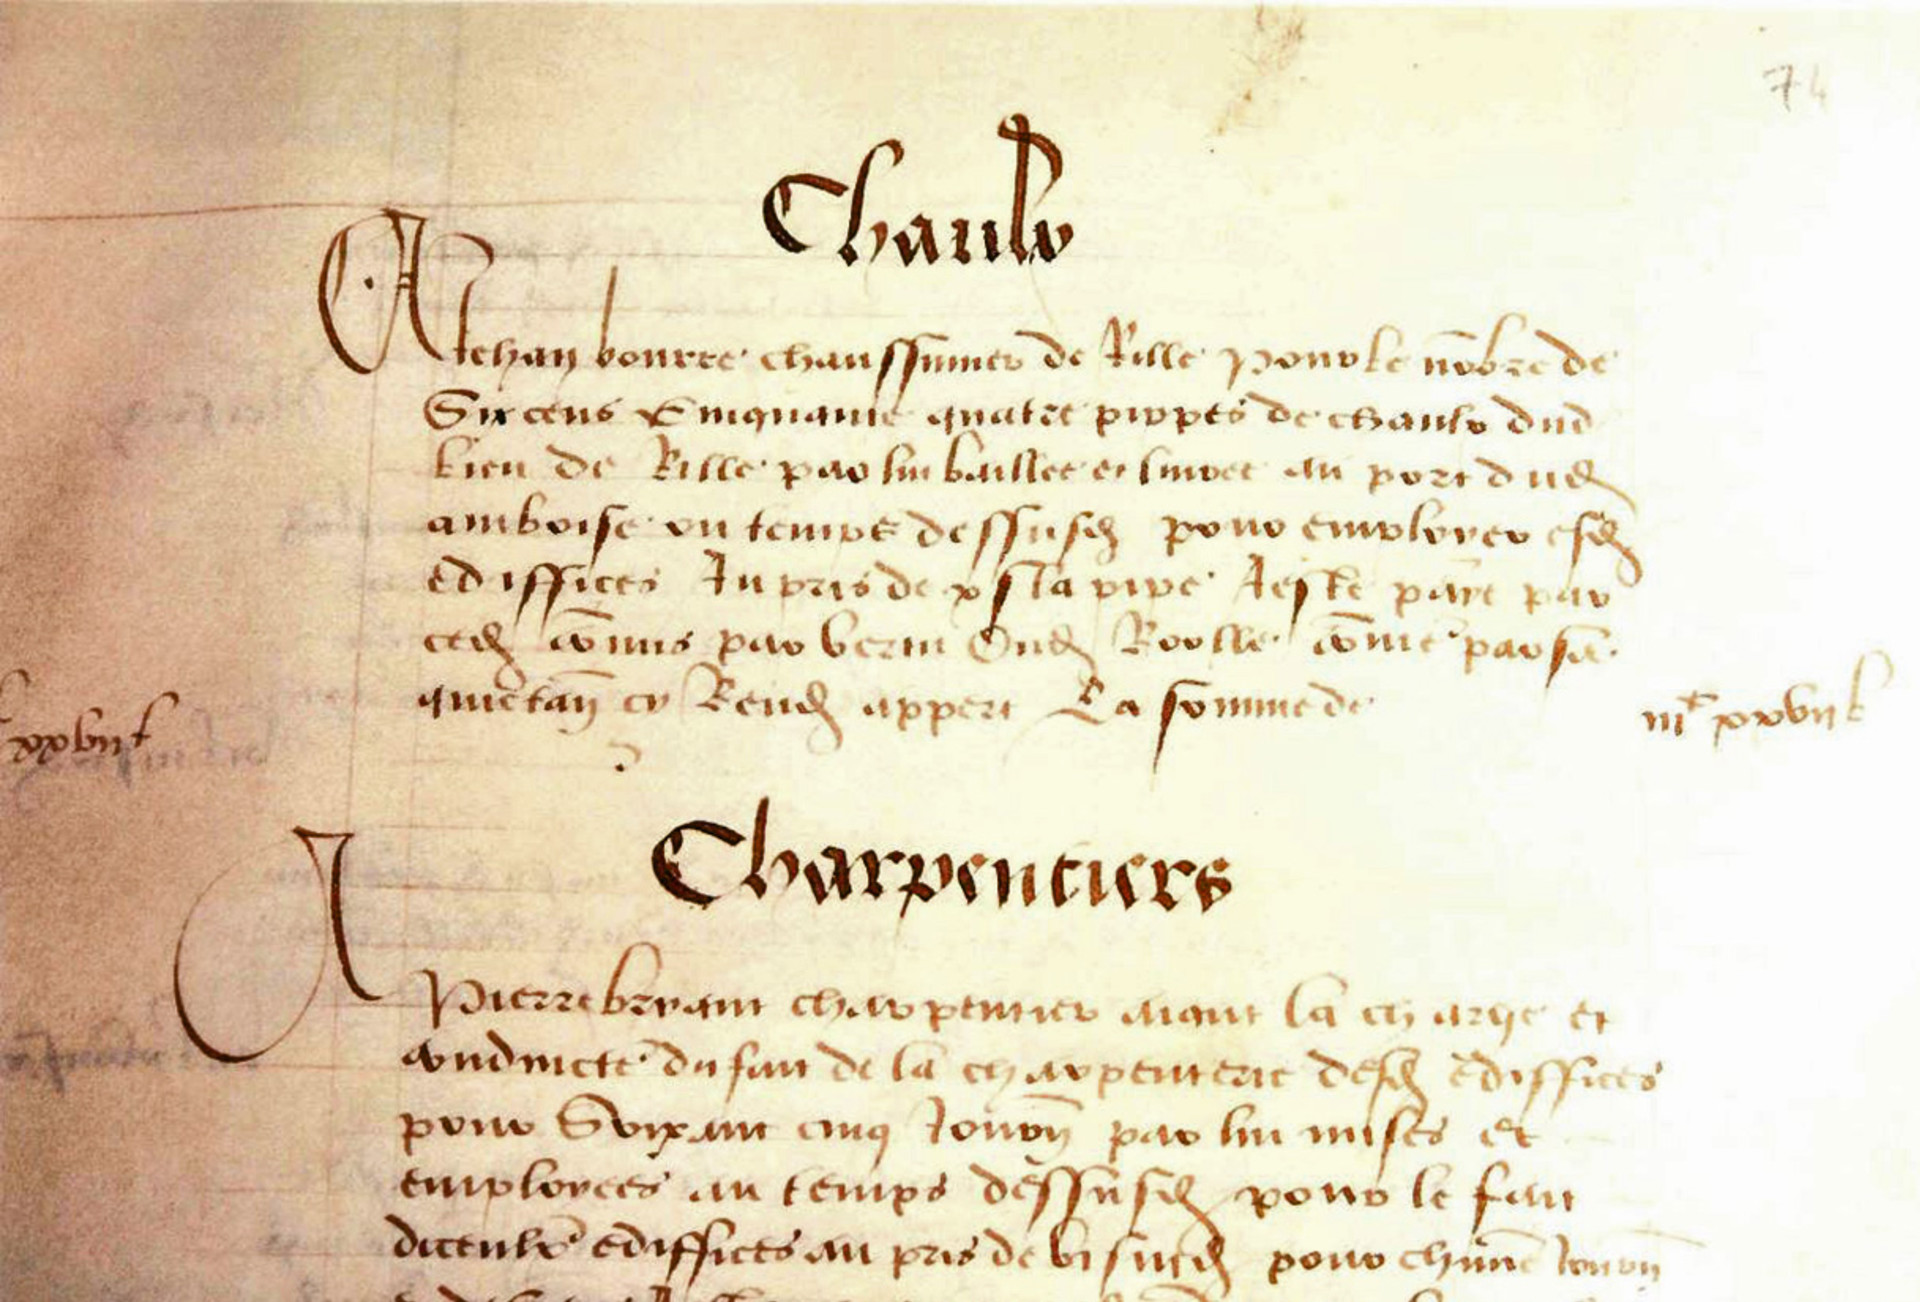 74
Chaulx
A Jehan bourre chaussumier de Rille pour le nōbre de
Six cens Cinquante quatre pippes de chaulx dud
lieu de Rille par lui baillee et livree au port dud
amboise ou temps dessusd pour emploier esd
ediffices Au pris de x s la pipe A este paye par
ced cōmis par vertu Dud Roolle cōme par sa
quictan cy Rend appert La somme de iiiᶜ xxvii l
xxvii l
Charpentiers
A Pierre bryant charpentier aiant la charge et
conduicte du fait de la charpenterie desd ediffices
pour Soixant cinq Journ par lui mises et
employees au temps dessusd pour le fait
diceulx ediffices au pris de vi s d pour chūne Journ